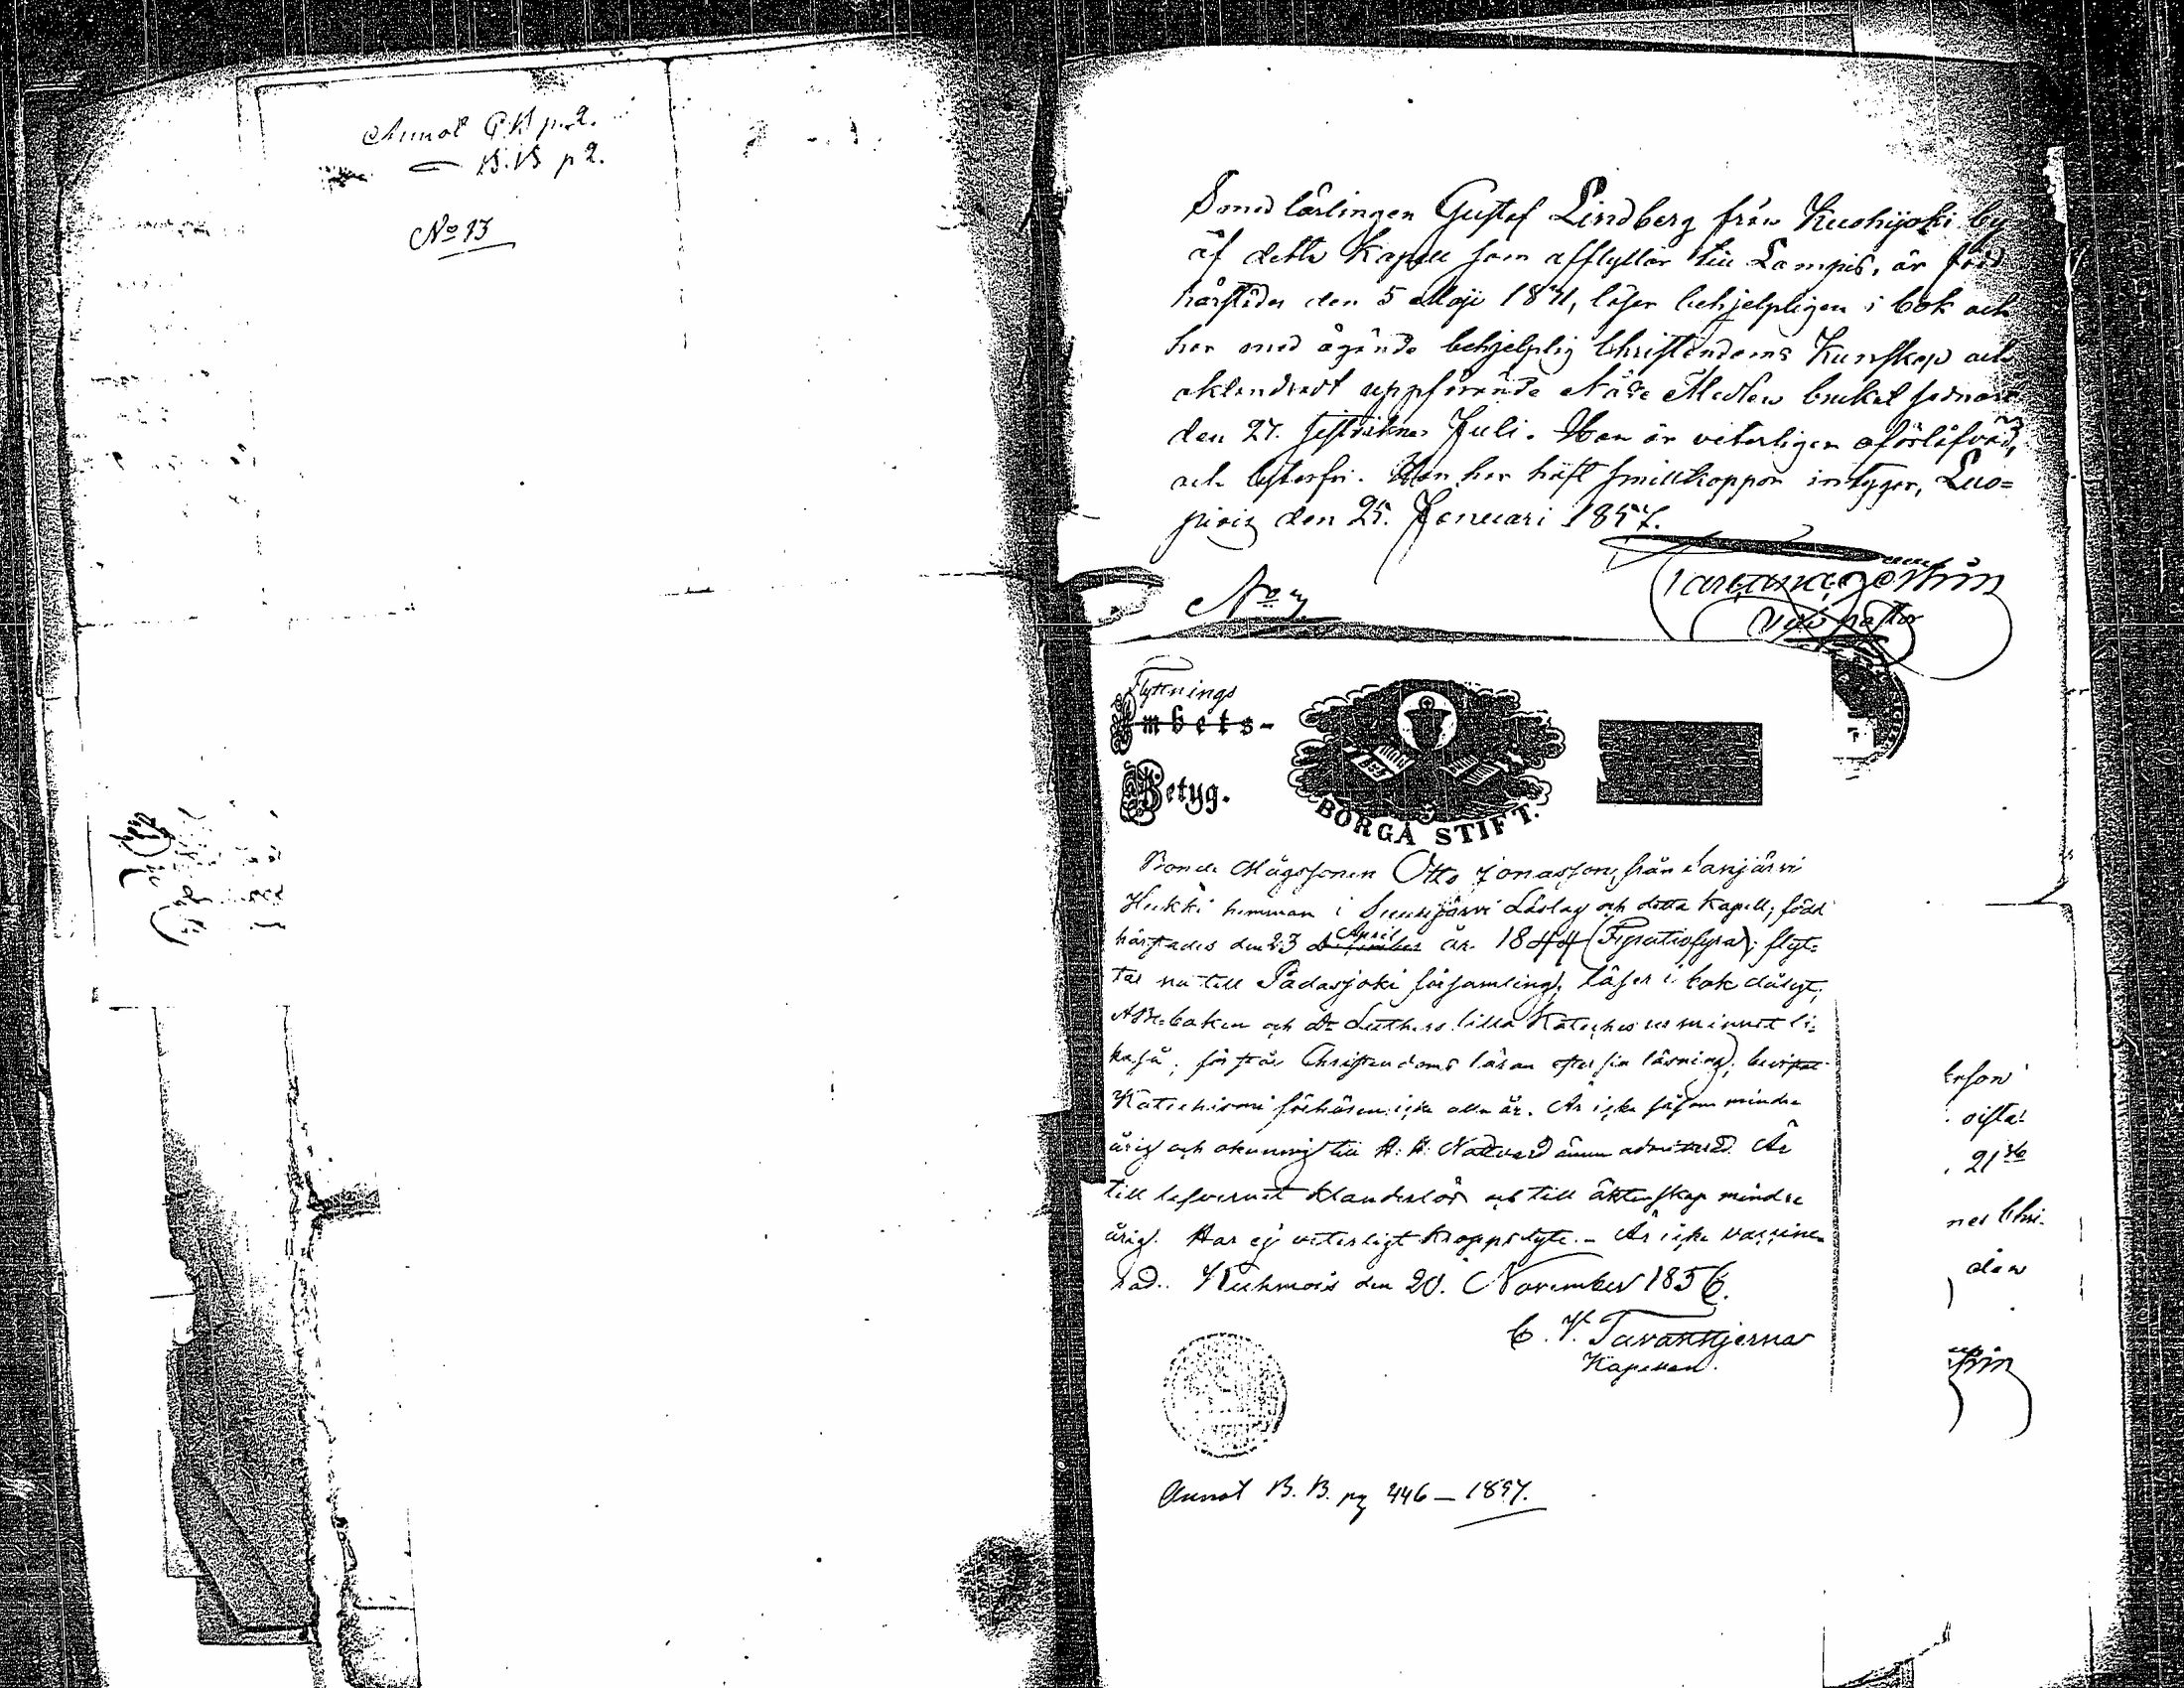 Annot P.K p. 2.
— B.B p 2.
No 13
Smedlärlingen Gustaf Lindberg från Kuohijoki by
af detta Kapell som afflyttar till Lampis, är född
härstädes den 5 Maji 1841, läser behjelpligen i bok och
har med ägande behjelplig Christendoms Kunskap och
oklandradt uppförande Nåde Medlen brukat sednast
den 27. sistvikne Juli. Han är veterligen oförlofvad,
och lytesfri. Han har haft smittkoppor intygar, Luo=
piois den 25. Januari 1857.
No 7.
vice pastor
Flyttnings
Embets-
Betyg.
BORGÅ STIFT.
Bonde Mågssonen Otto Jonasson, från
Heikki hemman i Läslag och detta Kapell; född
härstädes den 23 April år 1844 (Fyratiofyra); flyt=
tar nu till Padasjoki församling; läser i bok dåligt;
ABC-boken och Dr Luthers lilla Kateches ur minnet li=
kaså; förstår Christendoms läran efter sin läsning; bevistat
Katechismi förhören icke alla år. Är icke såsom minder
årig och okunnig till H. H. Nattvard ännu admitterad. Är
till lefvernet klanderlös och till äktenskap mindre
årig. Har ej veterligt kroppslyte. - Är icke vaccine=
rad. Kuhmois den 20. November 1856.
C. V. Tavaststjerna
Kapellan.
Annot B. B. pg 446 — 1857.
erson
21ste
nes Chri-
den